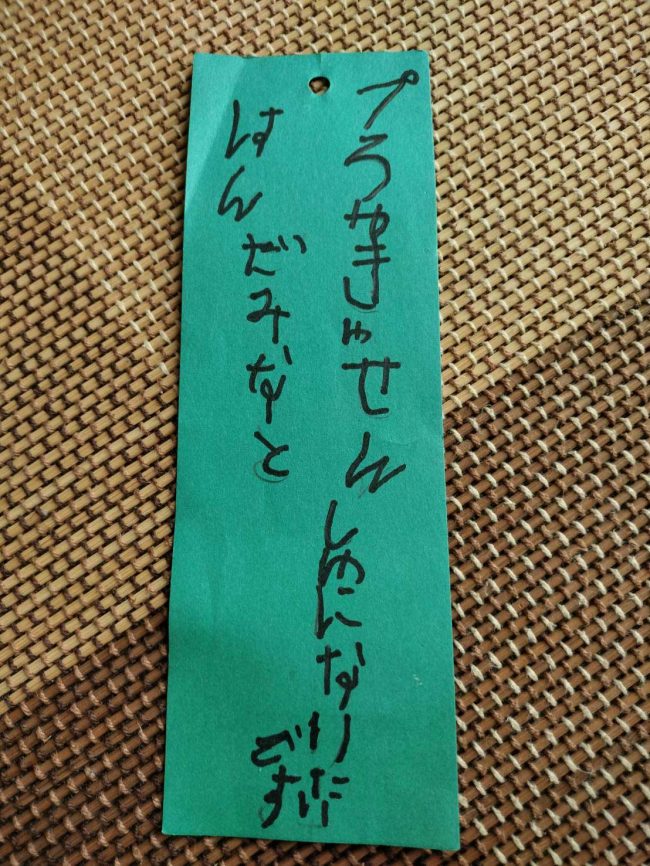 プろやきゅせんしゅになりた
です
はんだみなと